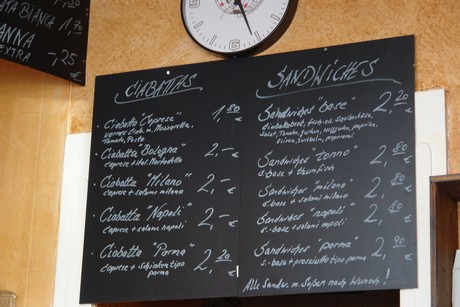 TA BIANCA 1,70
ANNA
EXTRA -,25
€
CIABATTAS
Ciabatta "Caprese" 1,80 €
warmes Ciab. m. Mozzarella,
Tomate, Pesto
Ciabatta "Bologna" 2,- €
caprese + ital. Mortadella
Ciabatta "Milano" 2,- €
caprese + salami milano
Ciabatta "Napoli" 2,- €
caprese + salami napoli
Ciabatta "Parma" 2,20 €
caprese + schinken tipo
parma
SANDWICHES
Sandwiches "base" 2,20 €
Salat, Tomate, Gurken, paprika,
oliven, zwiebeln, peperoni
Sandwiches "tonno" 2,80 €
s. base + thunfisch
Sandwiches "milano" 2,80 €
s. base + salami milano
Sandwiches "napoli" 2,80 €
s. base + salami napoli
Sandwiches "parma" 2,90 €
s. base + prosciutto tipo parma
Alle Sandw. m. Soßen nach Wunsch!